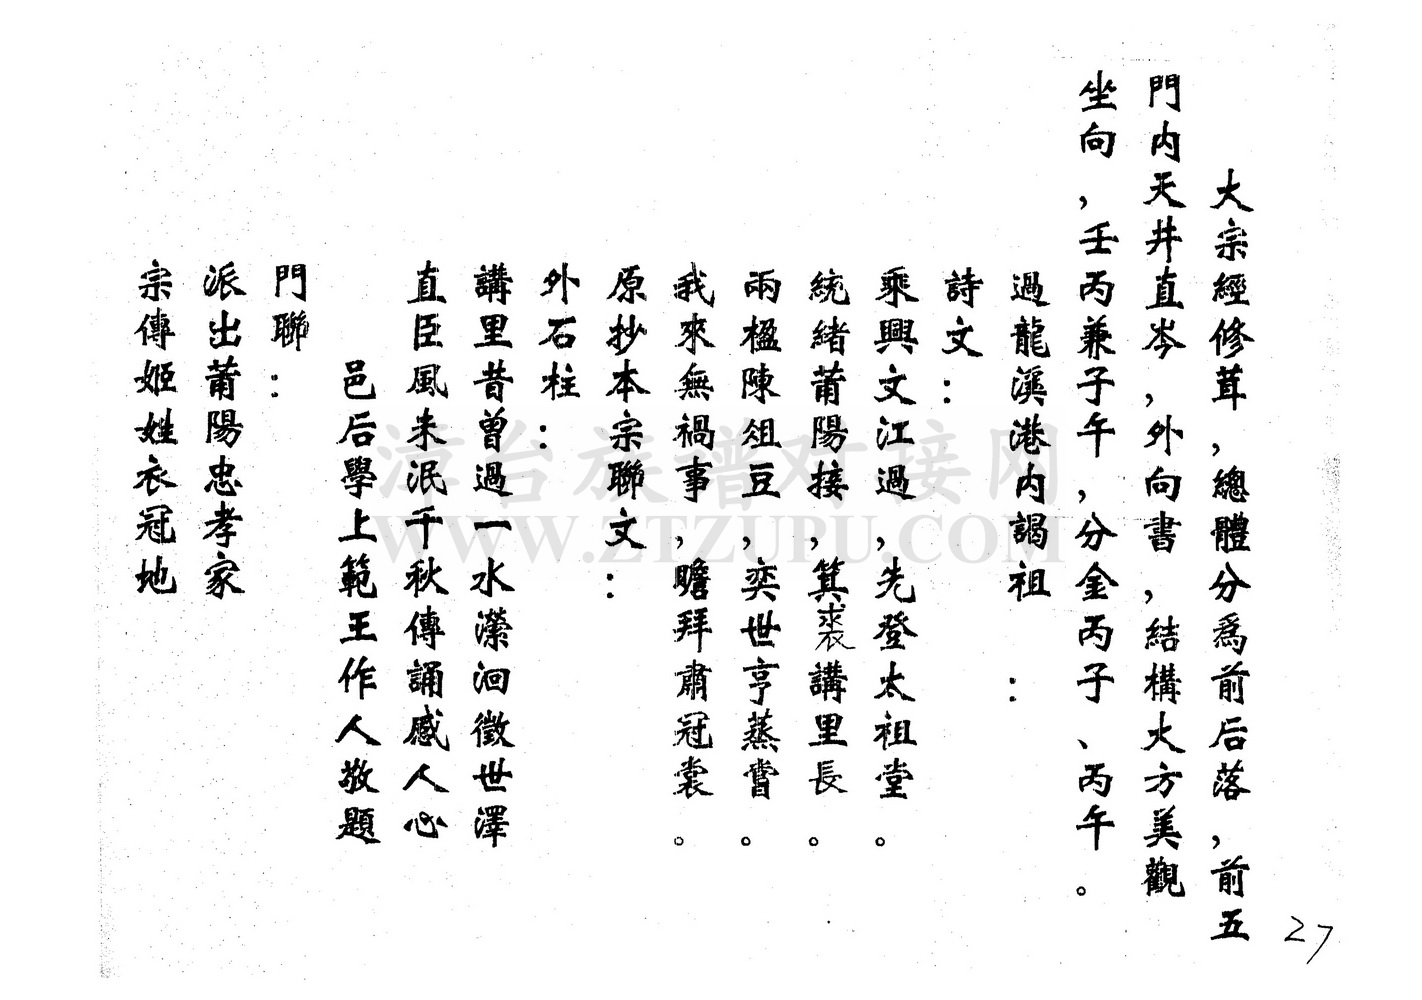 大宗經修茸，總體分爲前后落，前五
門内天井直岑，外向書，結構大方美觀
坐向，壬丙兼子午，分金丙子、丙午。
過龍溪港内謁祖：
詩文：
乘興文江過，先登太祖堂。
統緒莆陽接，箕裘講里長。
兩楹陳俎豆，奕世亨蒸嘗。
我來無禍事，瞻拜肅冠裳。
原抄本宗聯文：
外石柱：
講里昔曾過一水瀠洄徵世澤
直臣風未泯千秋傳誦感人心
邑后學上範王作人敬題
門聯：
派出莆陽忠孝家
宗傳姬姓衣冠地
27
漳台族谱对接网
WWW.ZTZUPU.COM